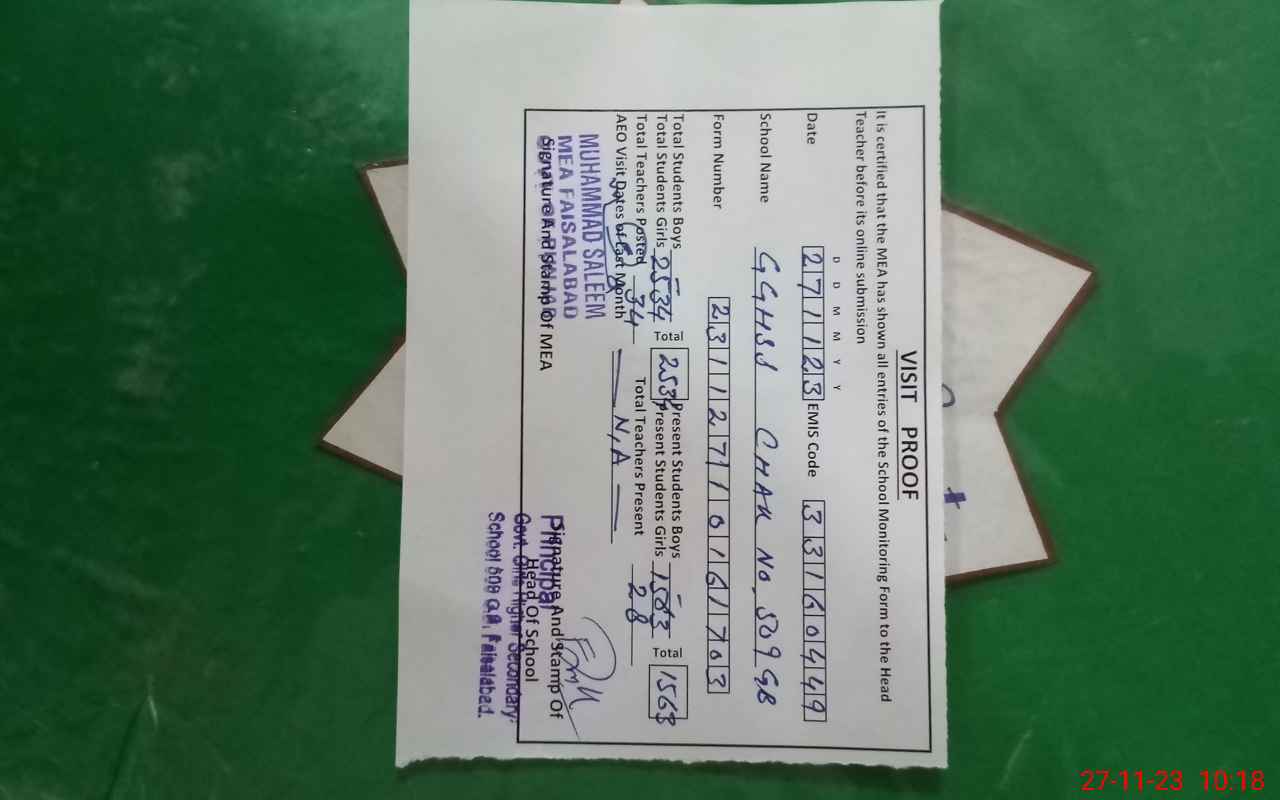 VISIT PROOF
It is certified that the MEA has shown all entries of the School Monitoring Form to the Head
Teacher before its online submission
D D M M Y Y
Date 271123 EMIS Code 33160449
School Name GGHSS CHAK NO. 509 GB
Form Number 2311271016
Total Students Boys Present Students Boys
Total Students Girls 2534 Total 2534 Present Students Girls 1563 Total 1563
Total Teachers Posted 34 Total Teachers Present 28
AEO Visit Dates of Last Month N,A
MUHAMMAD SALEEM
MEA FAISALABAD
Signature And Stamp Of MEA
Signature And Stamp Of
Head Of School
Principal
Govt. Girls Higher Secondary
School 509 G.B, Faisalabad.
27-11-23 10:18